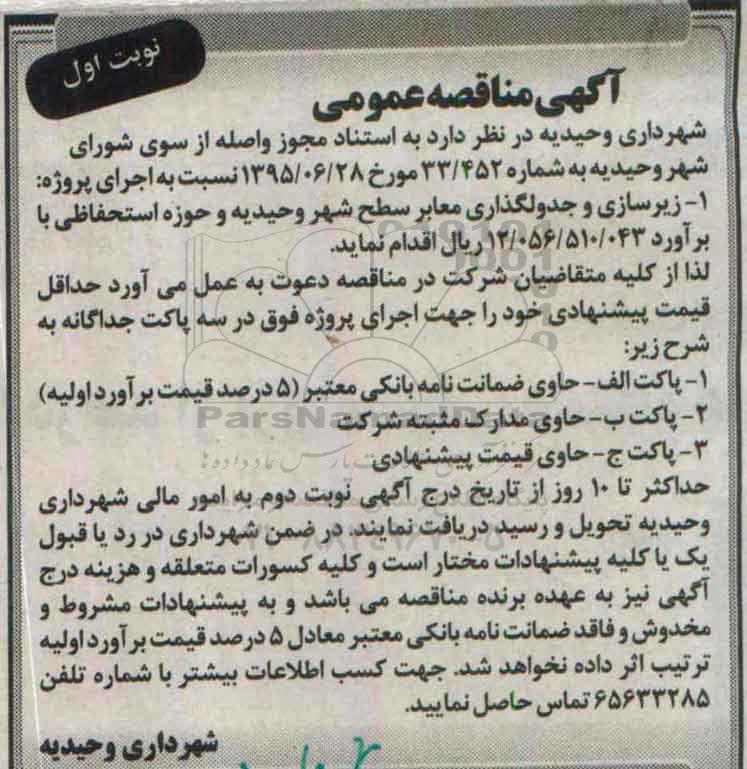 نوبت اول
آگهی مناقصه عمومی
شهرداری وحیدیه در نظر دارد به استناد مجوز واصله از سوی شورای
شهر وحیدیه به شماره ۳۳/۴۵۲ مورخ ۱۳۹۵/۰۶/۲۸ نسبت به اجرای پروژه:
۱- زیرسازی و جدولگذاری معابر سطح شهر وحیدیه و حوزه استحفاظی با
برآورد ۱۲/۰۵۶/۵۱۰/۰۴۳ ریال اقدام نماید.
لذا از کلیه متقاضیان شرکت در مناقصه دعوت به عمل می آورد حداقل
قیمت پیشنهادی خود را جهت اجرای پروژه فوق در سه پاکت جداگانه به
شرح زیر:
۱- پاکت الف- حاوی ضمانت نامه بانکی معتبر (۵ درصد قیمت برآورد اولیه)
۲- پاکت ب- حاوی مدارک مثبته شرکت
ParsNamadData
۳- پاکت ج- حاوی قیمت پیشنهادی
پارس نماد داده ها
حداکثر تا ۱۰ روز از تاریخ درج آگهی نوبت دوم به امور مالی شهرداری
وحیدیه تحویل و رسید دریافت نمایند. در ضمن شهرداری در رد یا قبول
یک یا کلیه پیشنهادات مختار است و کلیه کسورات متعلقه و هزینه درج
آگهی نیز به عهده برنده مناقصه می باشد و به پیشنهادات مشروط و
مخدوش و فاقد ضمانت نامه بانکی معتبر معادل ۵ درصد قیمت برآورد اولیه
ترتیب اثر داده نخواهد شد. جهت کسب اطلاعات بیشتر با شماره تلفن
۶۵۶۳۳۲۸۵ تماس حاصل نمایید.
شهرداری وحیدیه